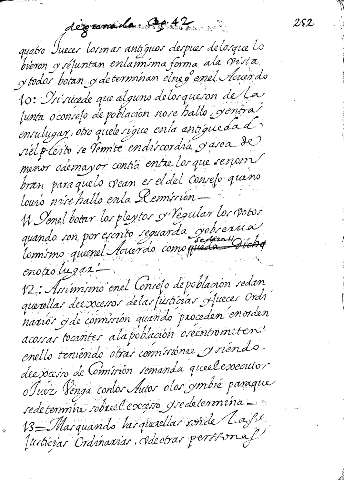 de granada. Cap. 42
252
quatro Jueces los mas antiguos despues delosque lo
bieron y se juntan enlamisma forma ala vista
y todos botan, y determinan el neg.o en el Acuerdo
10: I si sucede que alguno de los que son de La
Junta o consejo de poblacion nose hallo, y entra
en su lugar, otro quele sigue en la antiguedad
si el pleito se remite en discordia y a sea de
menor o de mayor contia entre los que se nom
bran para que lo vean es el del Consejo que no
lo vio ni se hallo en la Remission
11 I en el botar los pleytos y regular los votos
quando son por escrito se guarda y observa
lo mismo que en el Acuerdo como
en otro lugar
12: Assimismo en el Consejo de poblacion se dan
querellas de excesos de las Justicias y Jueces Ordi
narios y de comission quando proceden en orden
a cossas tocantes a la poblacion o se entrometen
en ello teniendo otras comissiones y siendo
de exceso de Comission se manda que el executor
o Juez Venga con los Autos o los ymbie para que
se determine sobre el exceso y se determina
13 Mas quando las querellas son de Las
Justicias Ordinarias, o de otras perssonas